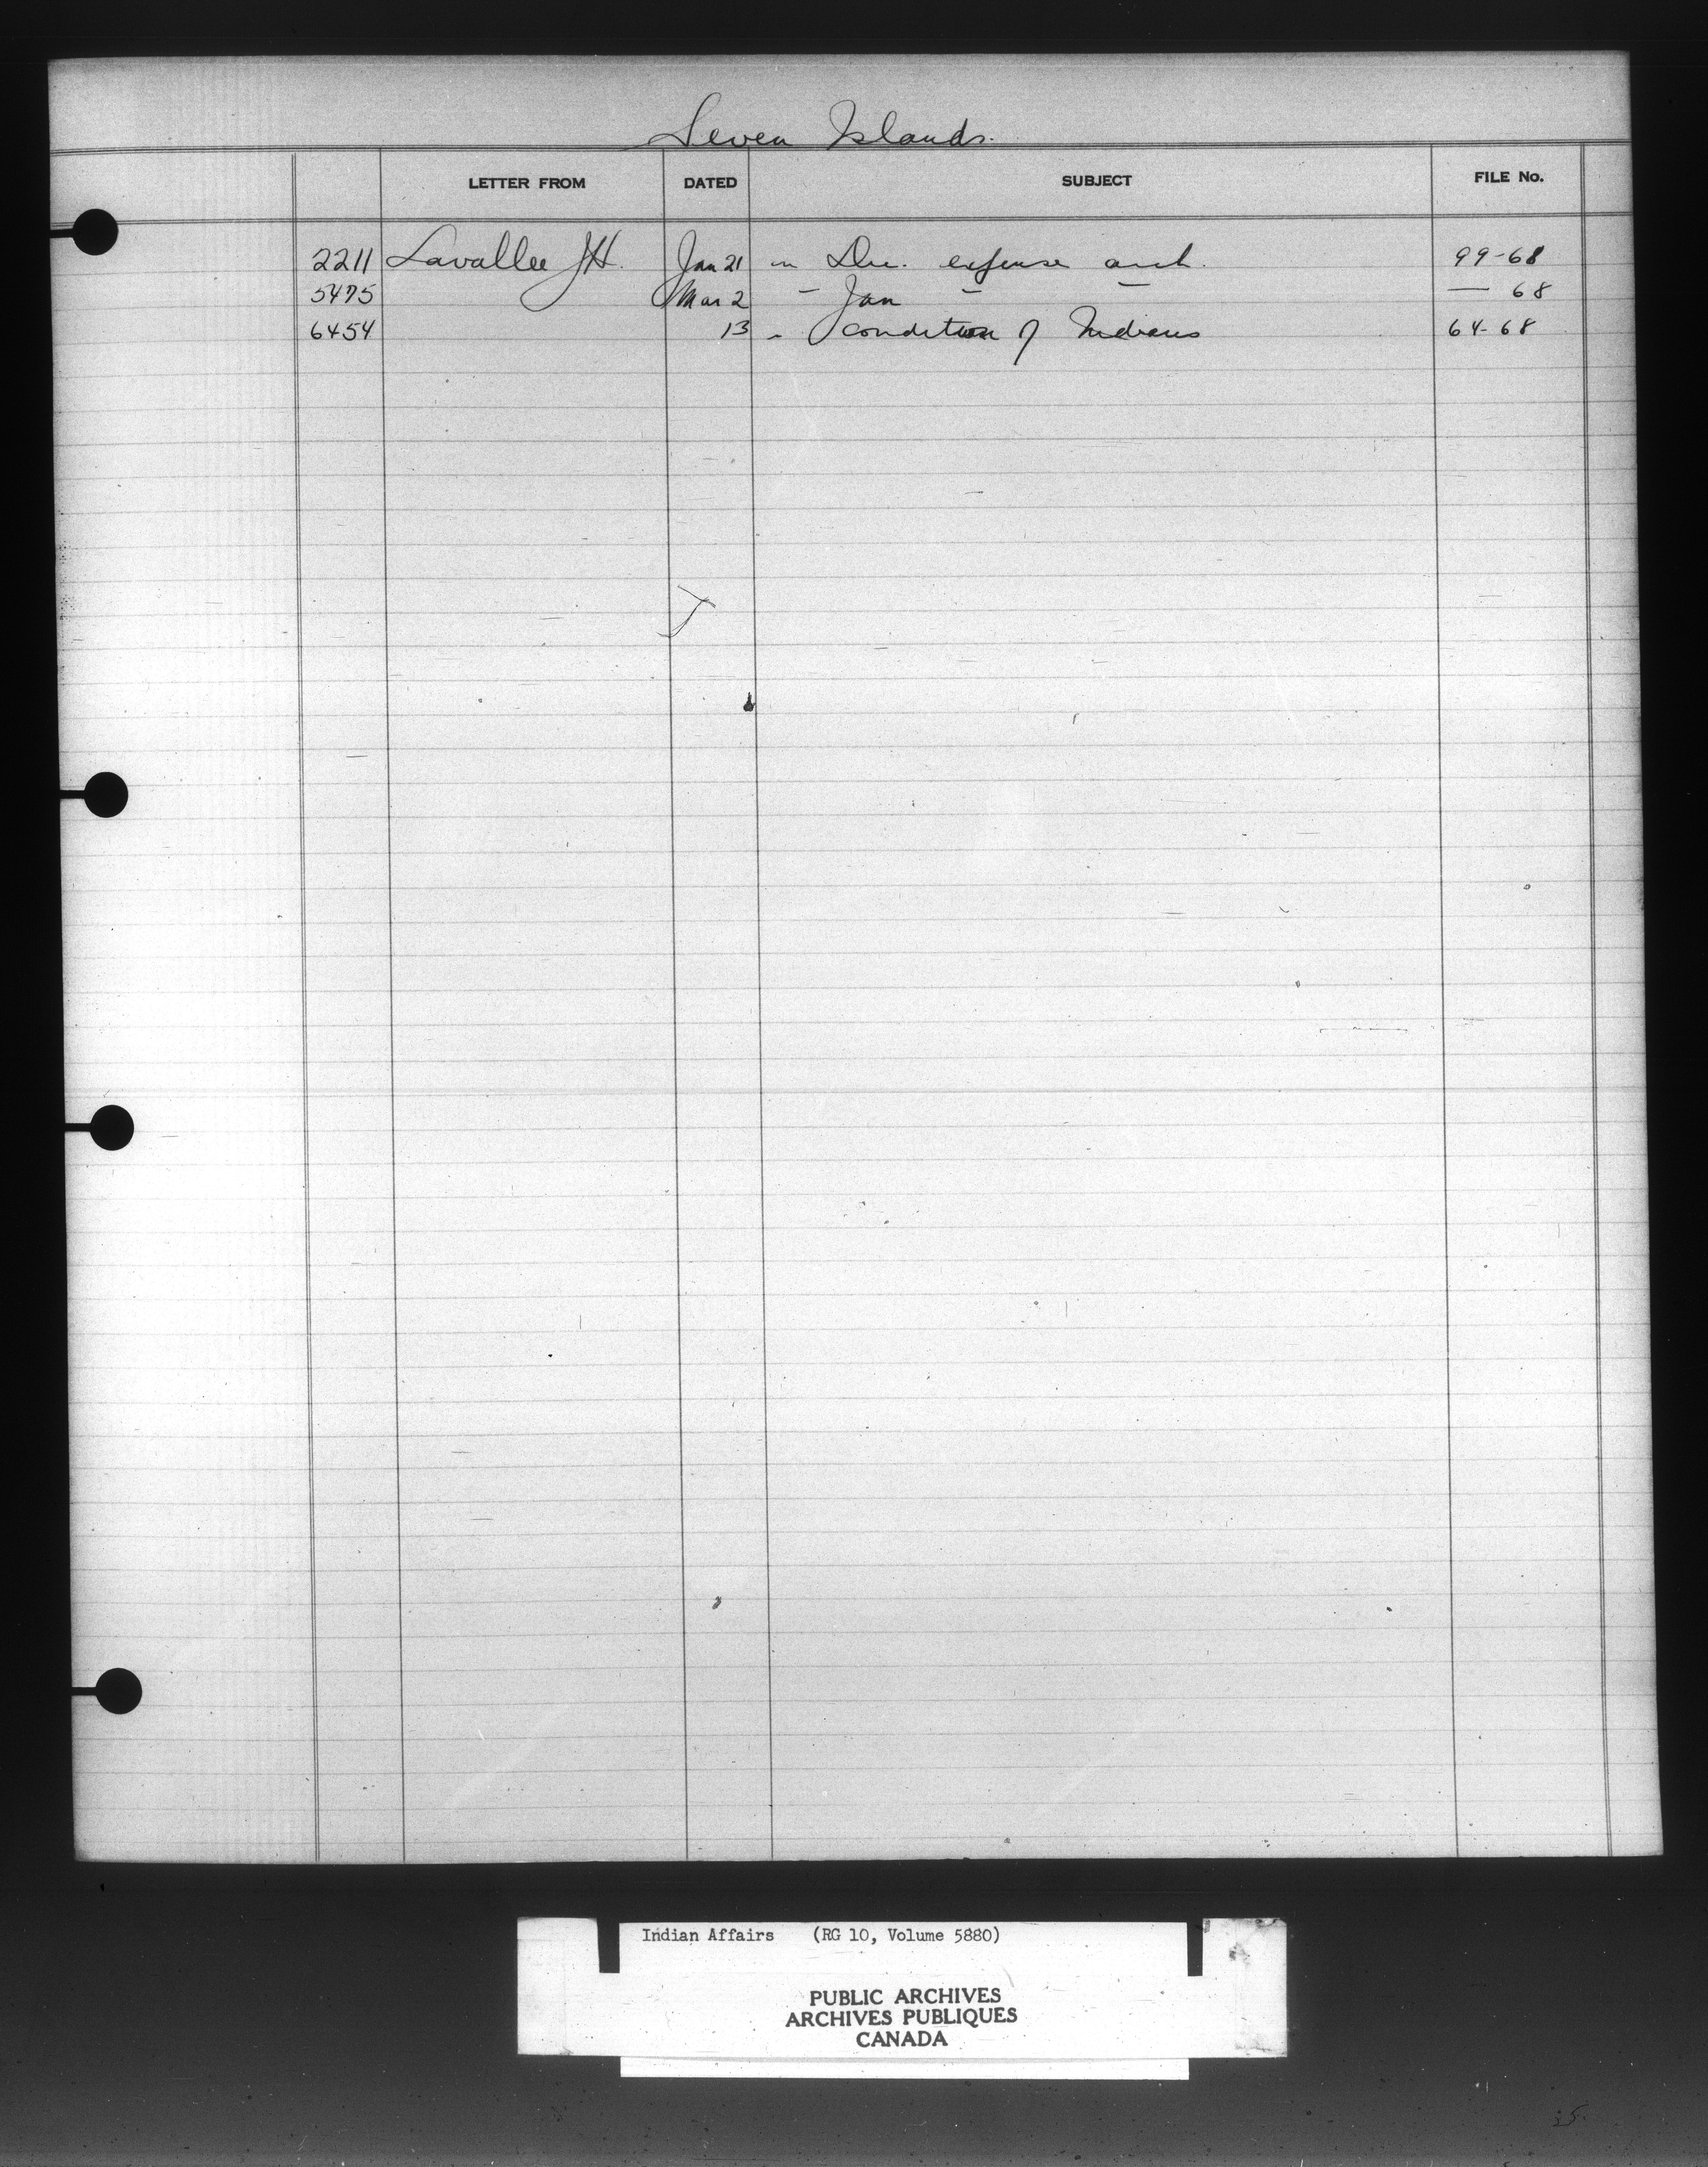 Seven Islands.
LETTER FROM DATED SUBJECT FILE No.
2211 Lavallee J H. Jan 21 in Dec. expense acct. 99-68
5475 Mar 2 " Jan " " — 68
6454 13 " condition of Indians 64-68
Indian Affairs (RG 10, Volume 5880)
PUBLIC ARCHIVES
ARCHIVES PUBLIQUES
CANADA